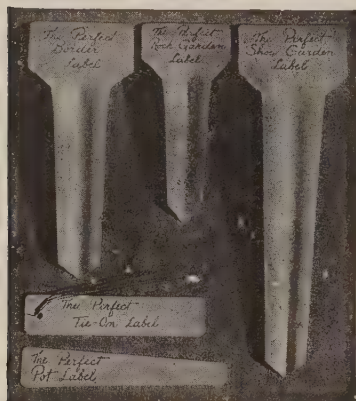 The Perfect
Border
Label
The Perfect
Rock Garden
Label
The Perfect
Show Garden
Label
The Perfect
Tie-On Label
The Perfect
Pot Label